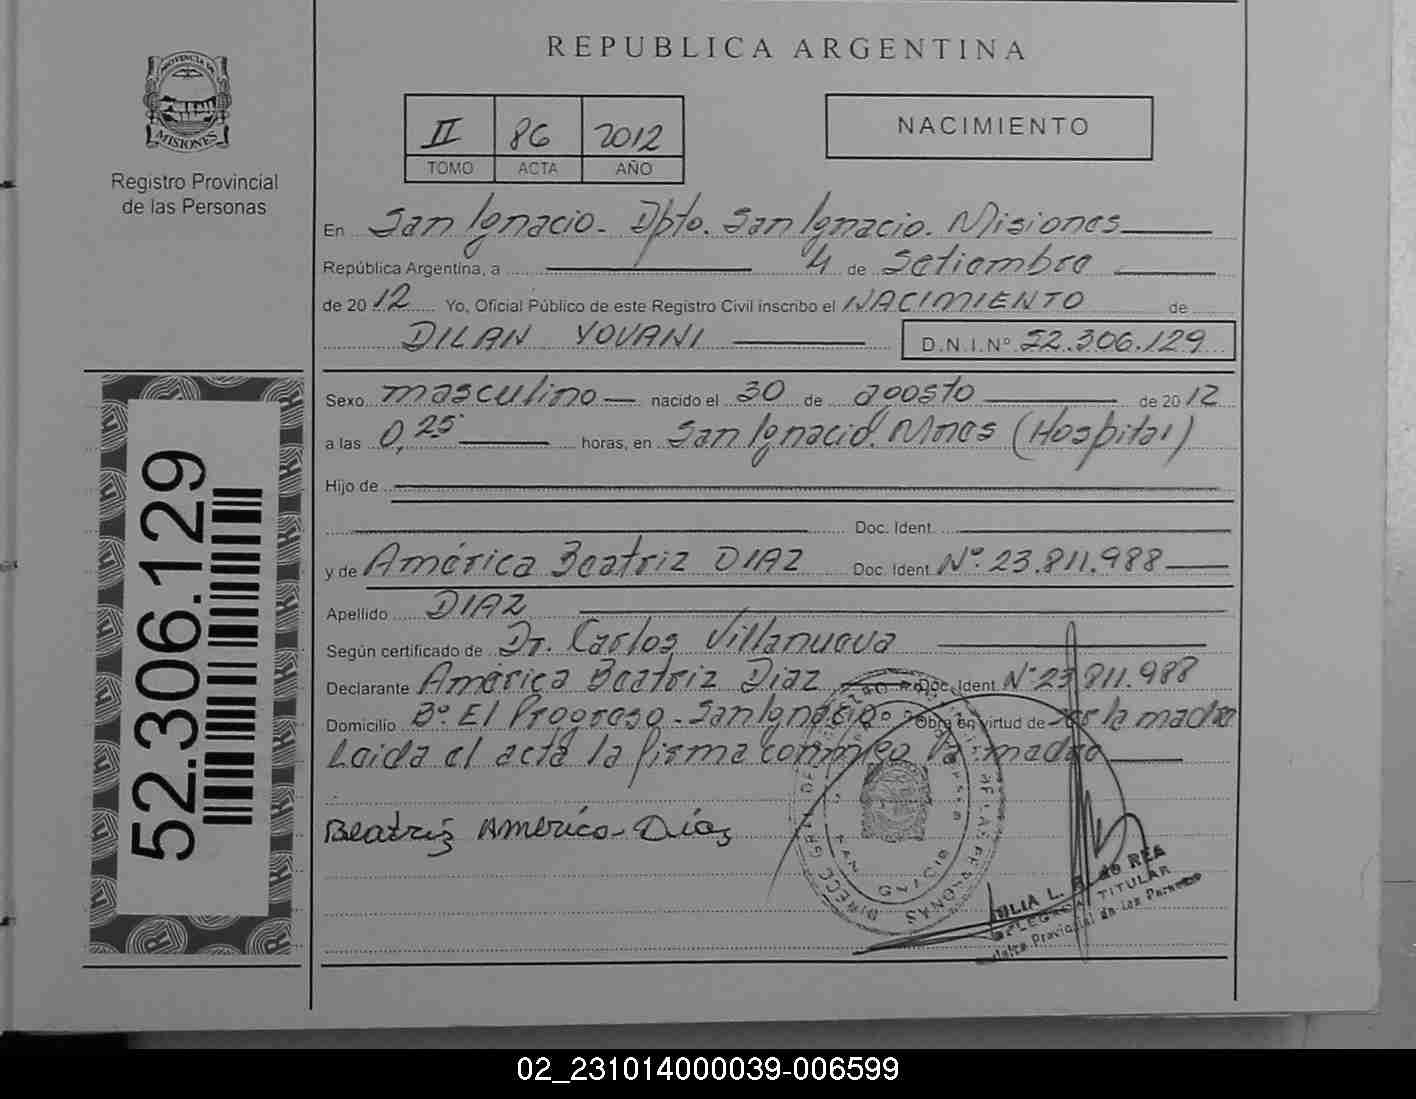 REPUBLICA ARGENTINA
PROVINCIA DE
MISIONES
Registro Provincial
de las Personas
II 86 2012
TOMO ACTA AÑO
NACIMIENTO
En San Ignacio - Dpto. San Ignacio. Misiones
República Argentina, a 4 de Setiembre
de 2012 Yo, Oficial Público de este Registro Civil inscribo el NACIMIENTO de
DILAN YOVANI D.N.I.Nº 52.306.129
Sexo masculino nacido el 30 de agosto de 2012
a las 0,25 horas, en San Ignacio. Mnes (Hospital)
Hijo de
Doc. Ident.
y de América Beatriz DIAZ Doc. Ident Nº 23.811.988
Apellido DIAZ
Según certificado de Dr. Carlos Villanueva
Declarante América Beatriz Diaz Doc. Ident Nº 23.811.988
Domicilio Bº El Progreso - San Ignacio Obra en virtud de ser la madre
Leida el acta la firma conmigo la madre
Beatriz América Díaz
52.306.129
JULIA L. de REA
DELEGADA TITULAR
Provincial de las Personas
02_231014000039-006599